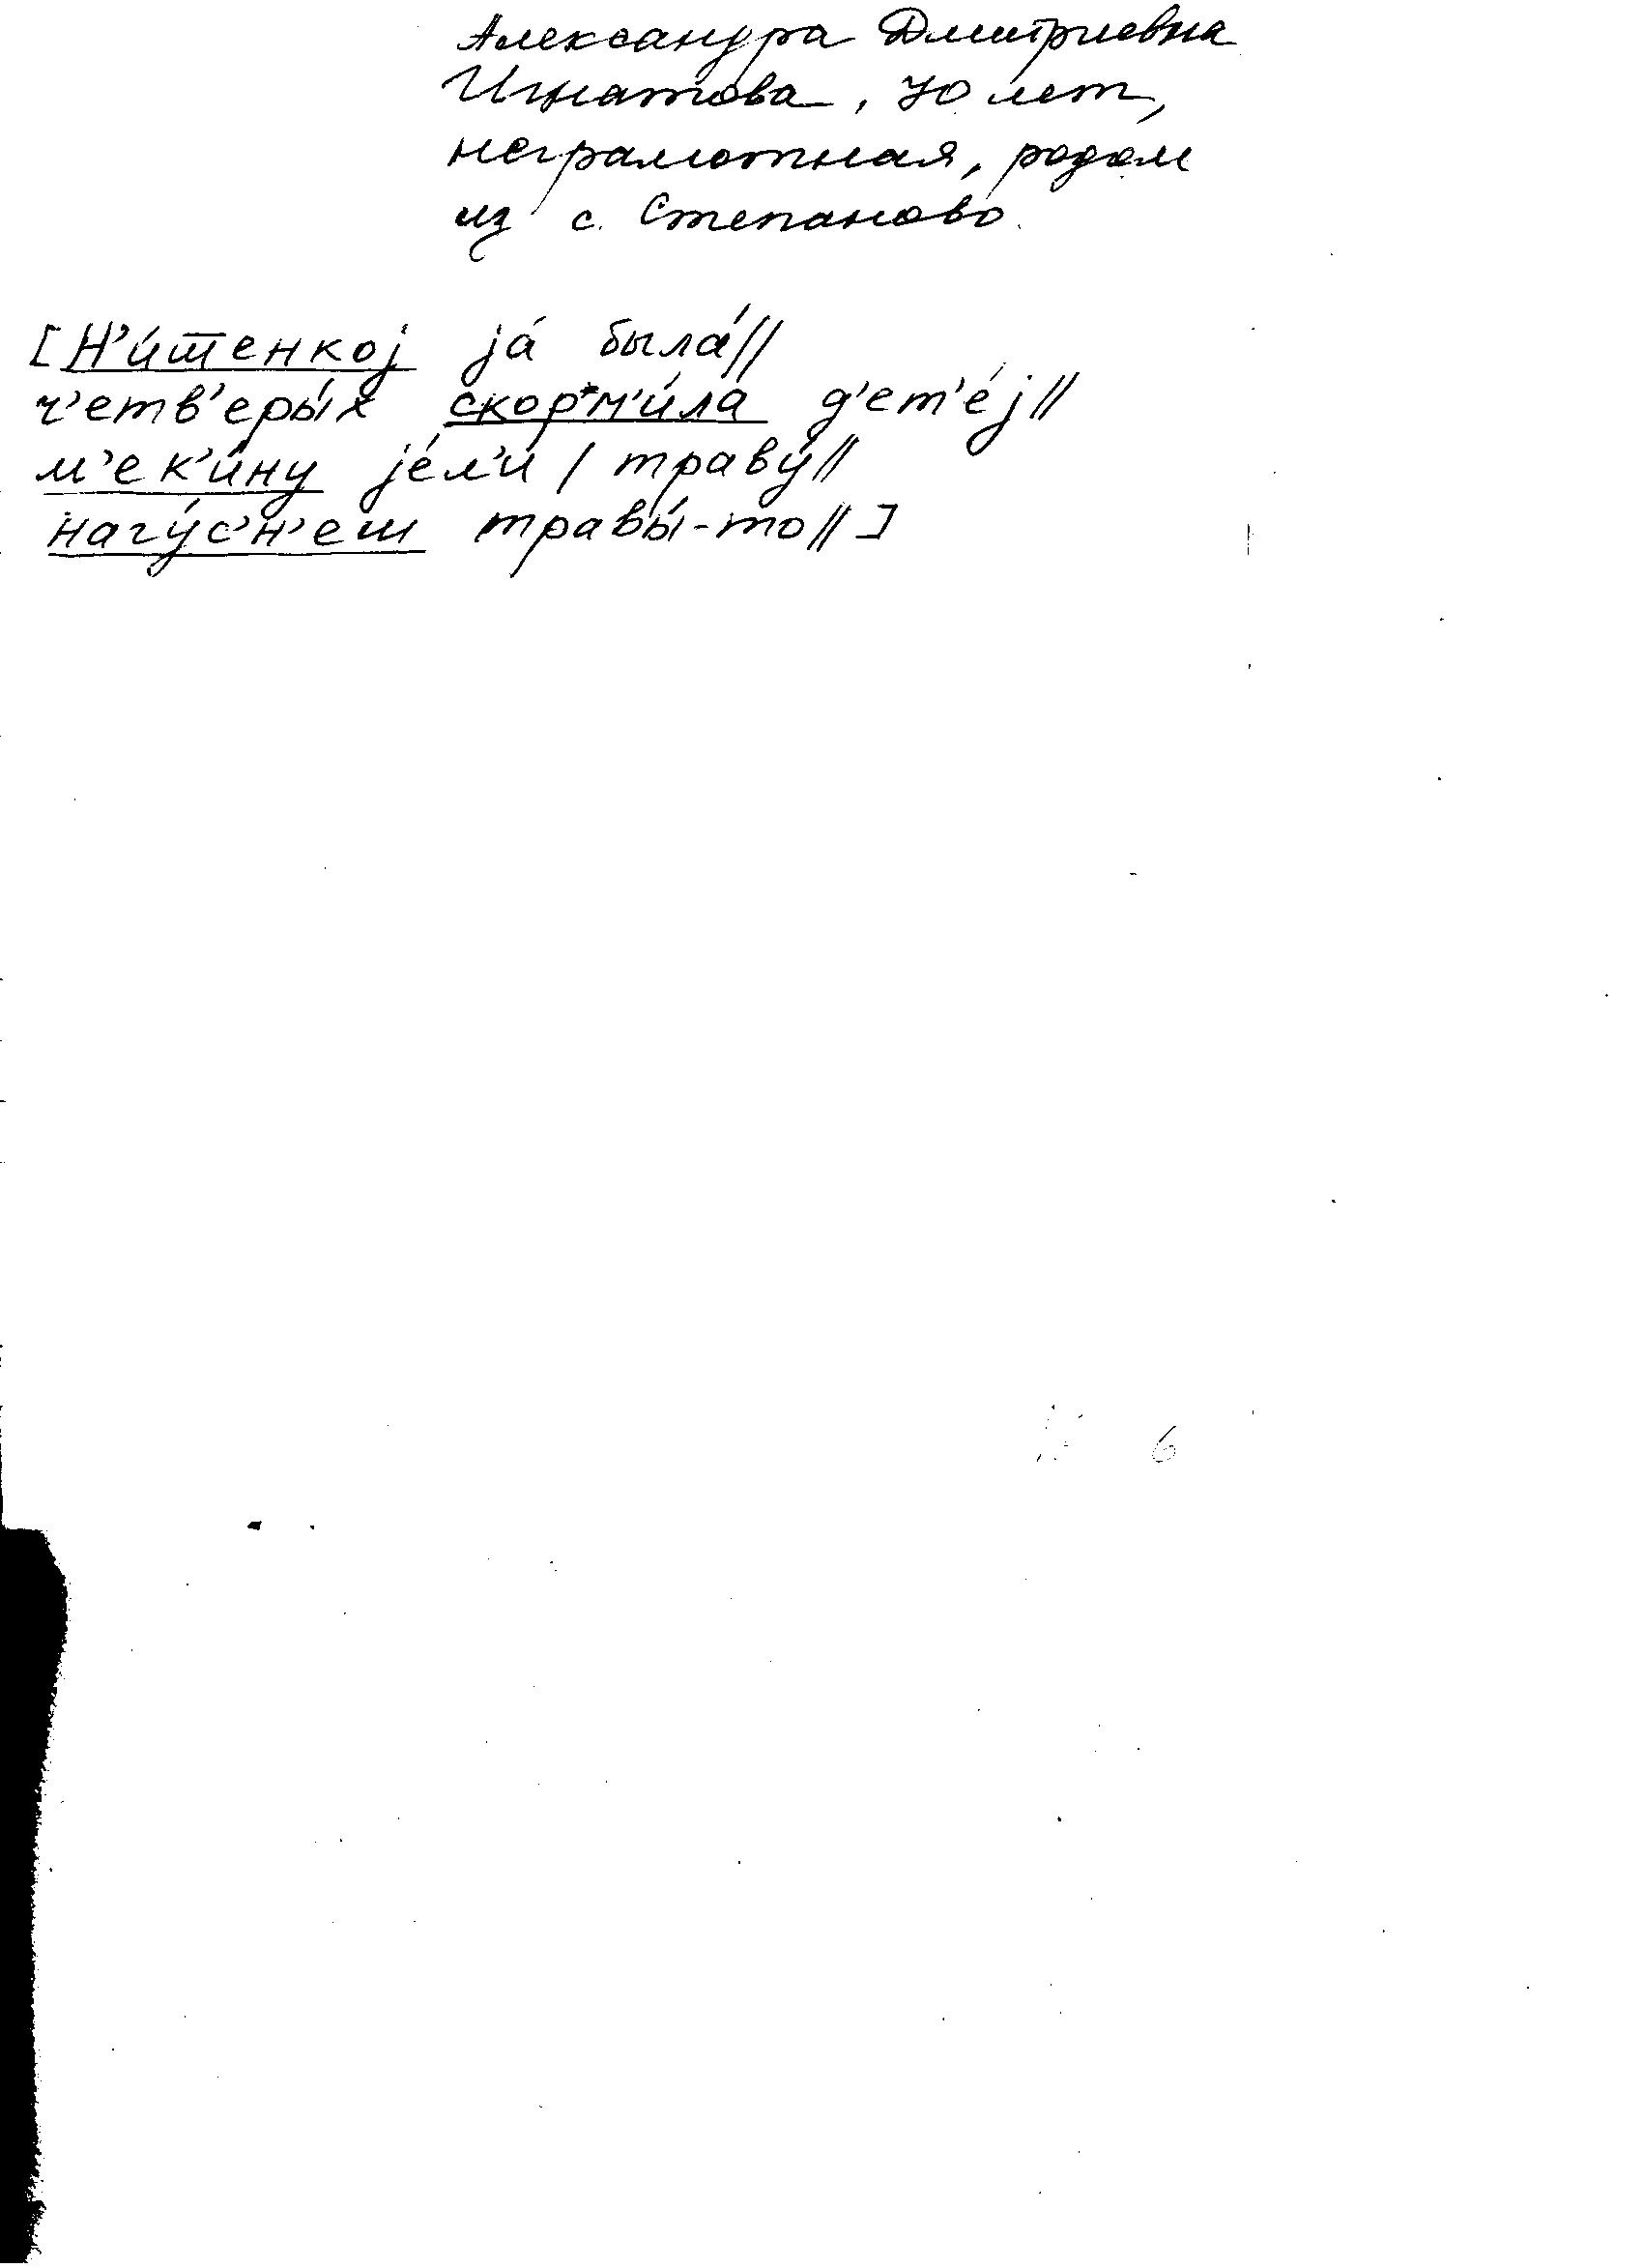 Александра Дмитриевна
Игнатова, 70 лет,
неграмотная, родом
из с. Степаново.
[Н'и́т̅енкоj jа́ была́//
ч'етв'еры́х скорм'и́ла д'ет'е́j//
м'ек'и́ну jе́л'и / траву́//
нагу́с'н'еш травы́-то//]
6